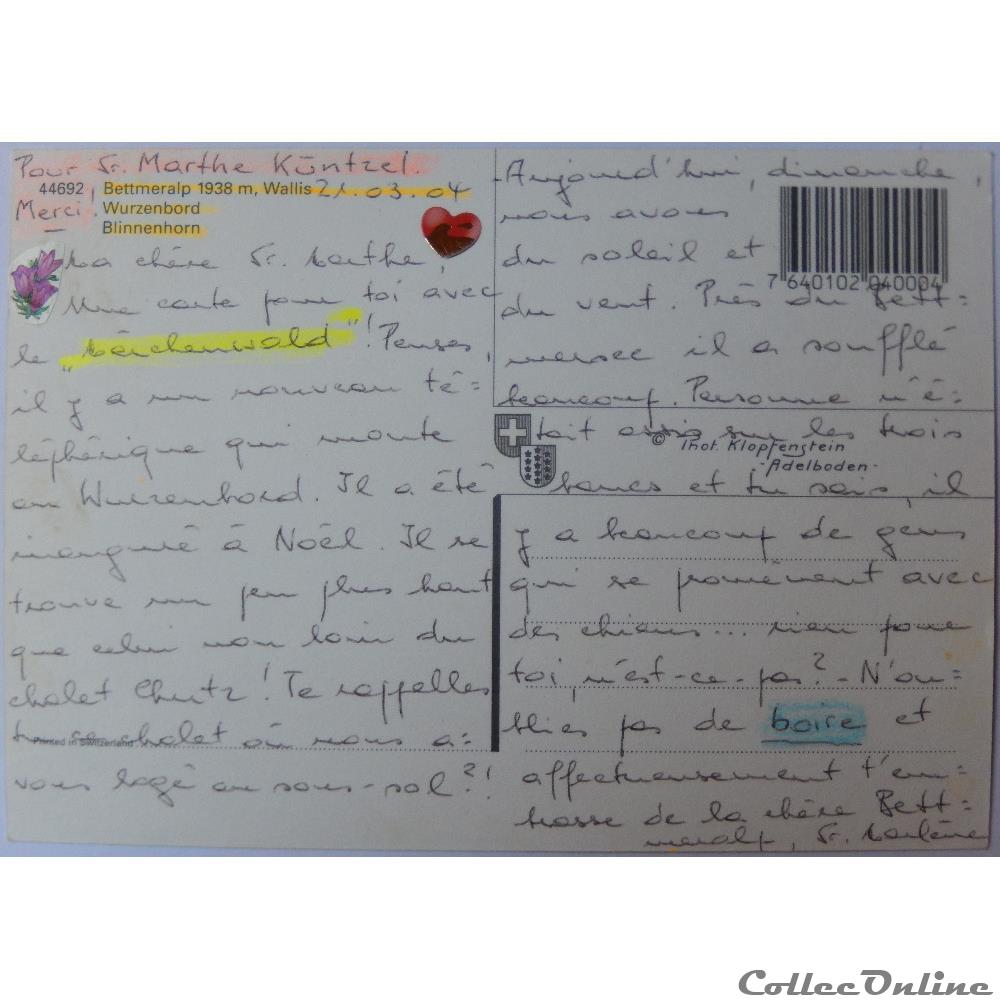 Pour Sr. Marthe Küntzel.
44692 Bettmeralp 1938 m, Wallis 21.03.04
Merci. Wurzenbord
Blinnenhorn
Ma chère Sr. Marthe,
Une carte pour toi avec
le "Lärchenwald"! Penses,
il y a un nouveau té=
léphérique qui monte
au Wurzenbord. Il a été
inauguré à Noël. Il se
trouve un peu plus haut
que celui non loin du
chalet Chutz! Te rappelles
tu ce chalet où nous a=
Printed in Switzerland
vons logé au sous-sol?!
-Aujourd'hui, dimanche,
nous avons
du soleil et
7 640102 040004
du vent. Près du Bett=
mersee il a soufflé
beaucoup. Personne n'é=
tait assis sur les trois
© Thot. Klopfenstein
-Adelboden-
bancs et tu sais, il
y a beaucoup de gens
qui se promènent avec
des chiens... rien pour
toi, n'est-ce-pas? - N'ou=
blies pas de boire et
affectueusement t'em=
brasse de la chère Bett=
meralp, Sr. Marlène
CollecOnline